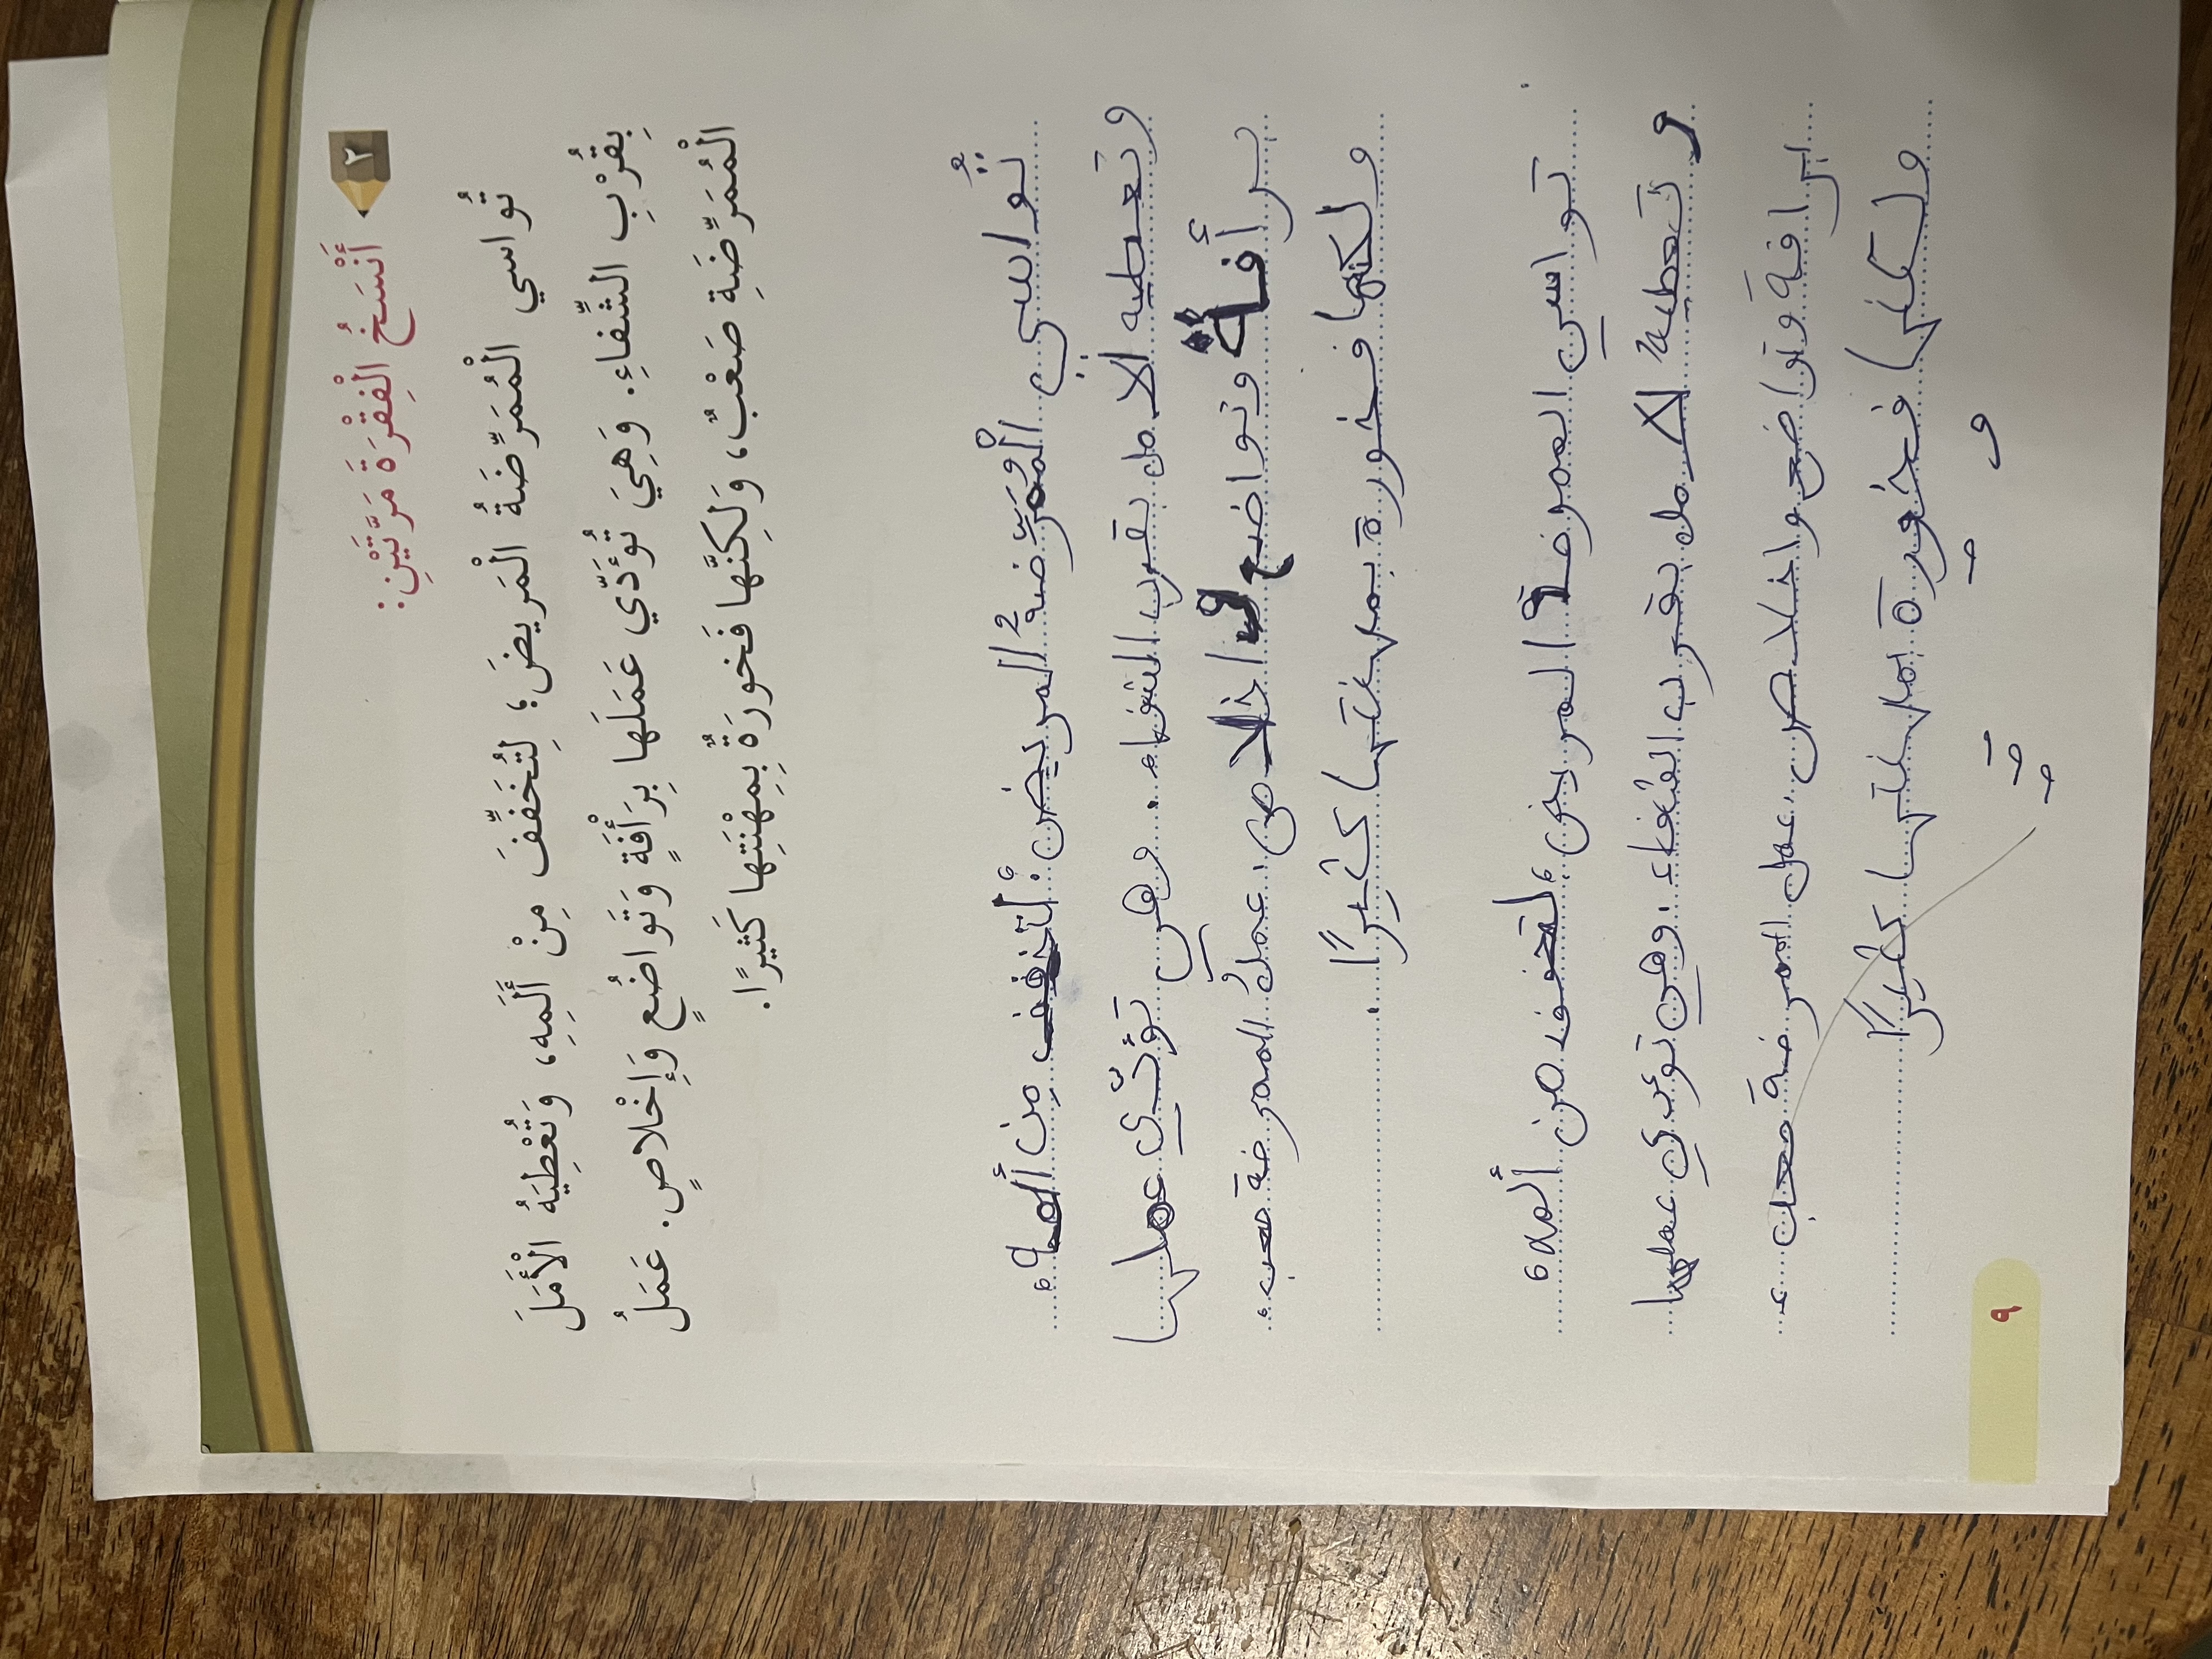 ٢
أَنْسَخُ الْفِقْرَةَ مَرَّتَيْنِ:
تُواسي الْمُمَرِّضَةُ الْمَريضَ؛ لِتُخَفِّفَ مِنْ أَلَمِهِ، وَتُعْطِيَهُ الْأَمَلَ
بِقُرْبِ الشِّفاءِ. وَهِيَ تُؤَدّي عَمَلَها بِرَأْفَةٍ وَتَواضُعٍ وَإِخْلاصٍ. عَمَلُ
الْمُمَرِّضَةِ صَعْبٌ، وَلكِنَّها فَخورَةٌ بِمِهْنَتِها كَثيرًا.
تُواسي المُمَرِّضةُ المريض؛ لتخفف مِن ألمه،
وتعطيه الامل بقرب الشفاء. وهي تؤدّي عملها
برأفة وتواضع و اخلاص. عملُ الممرضة صعب،
ولكنها فخورة بمهنتها كثيرًا.
تواسي الممرضة المريض، لتخفف من ألمه،
و تعطيه الامل بقرب الشفاء. وهي تؤدي عملها
برافة وتواضع واخلاص. عمل الممرضة صعب،
ولكنها فخورة بمهنتها كثيرًا
و
٩